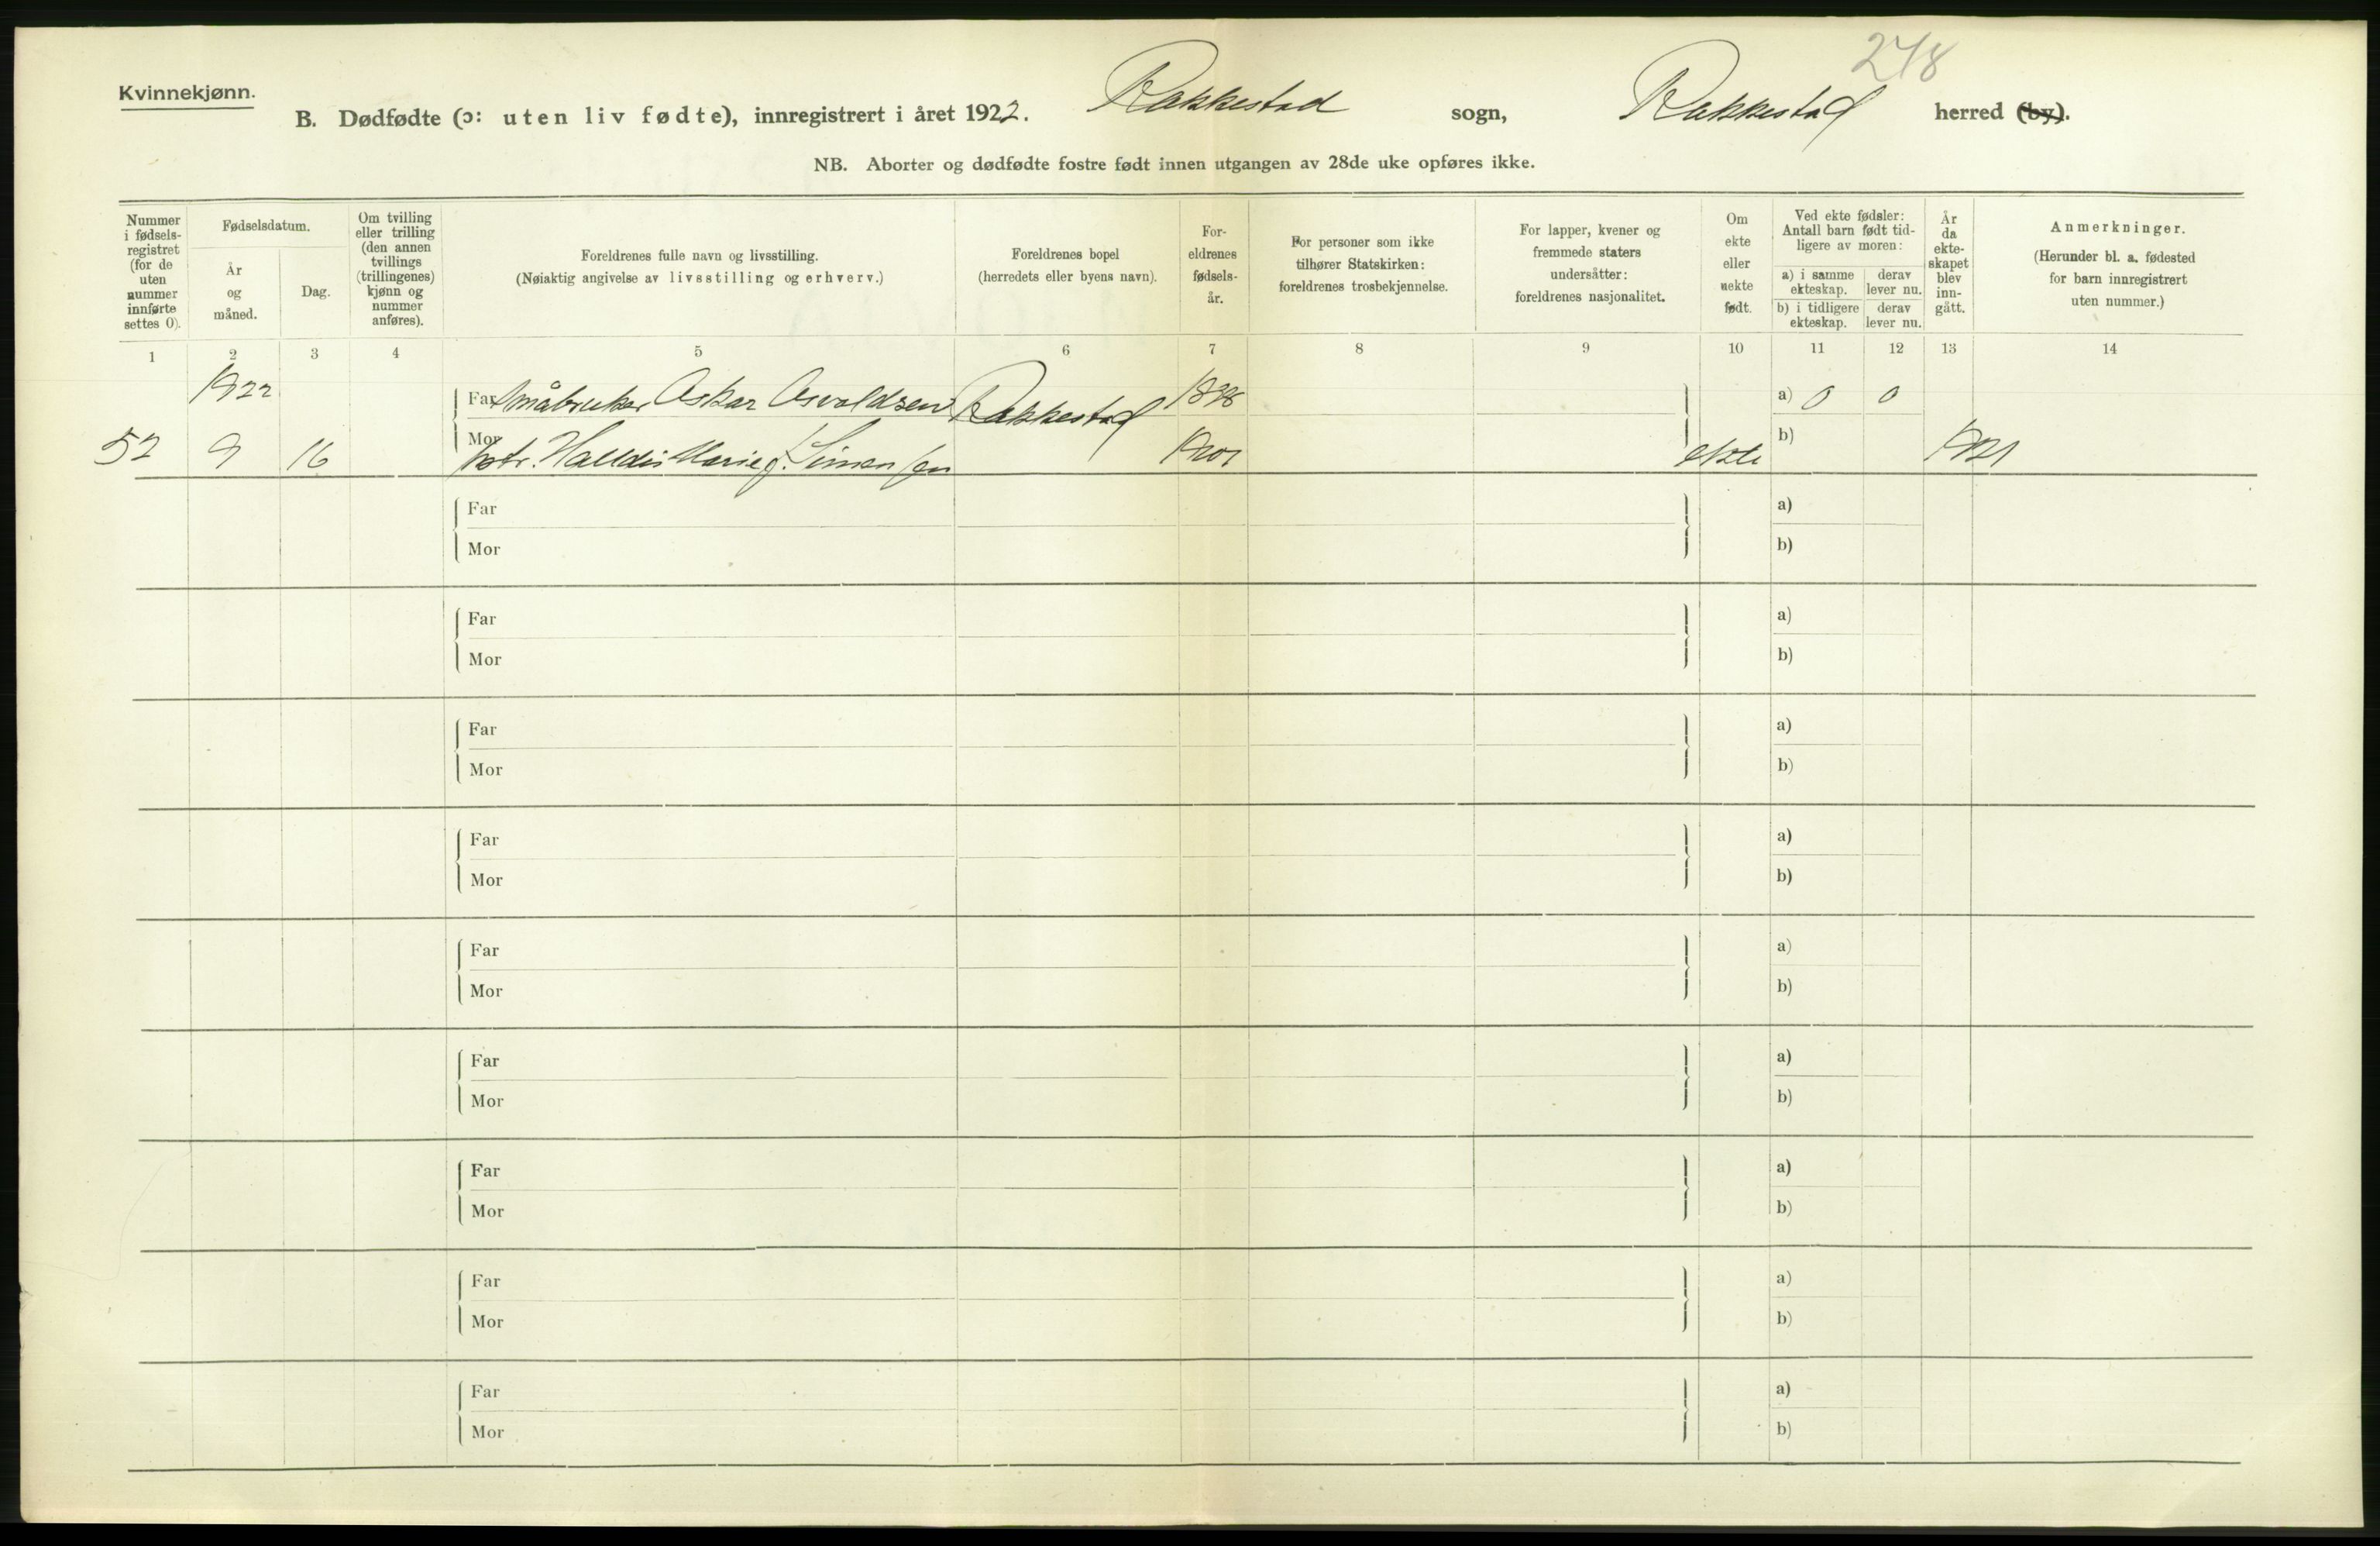 248
Kvinnekjønn.
B. Dødfødte (ɔ: uten liv fødte), innregistrert i året 1922. Rakkestad sogn, Rakkestad herred (by).
NB. Aborter og dødfødte fostre født innen utgangen av 28de uke opføres ikke.
Nummer i fødsels- registret (for de uten nummer innførte settes 0).
Fødselsdatum.
År og måned.
Dag.
Om tvilling eller trilling (den annen tvillings (trillingenes) kjønn og nummer anføres).
Foreldrenes fulle navn og livsstilling.
(Nøiaktig angivelse av livsstilling og erhverv.)
Foreldrenes bopel
(herredets eller byens navn).
For- eldrenes fødsels- år.
For personer som ikke tilhører Statskirken: foreldrenes trosbekjennelse.
For lapper, kvener og fremmede staters undersåtter: foreldrenes nasjonalitet.
Om ekte eller uekte født.
Ved ekte fødsler: Antall barn født tid- ligere av moren:
a) i samme ekteskap.
derav lever nu.
b) i tidligere ekteskap.
derav lever nu.
År da ekte- skapet blev inn- gått.
Anmerkninger.
(Herunder bl. a. fødested for barn innregistrert uten nummer.)
1 2 3 4 5 6 7 8 9 10 11 12 13 14
1922 Far Småbruker Oskar Osvaldsen Rakkestad a) 0 0
52 9 16 Mor Hstr. Halldis Marie f. Simensen 1901 ekte b) 1921
Far a)
Mor b)
Far a)
Mor b)
Far a)
Mor b)
Far a)
Mor b)
Far a)
Mor b)
Far a)
Mor b)
Far a)
Mor b)
Far a)
Mor b)
Far a)
Mor b)